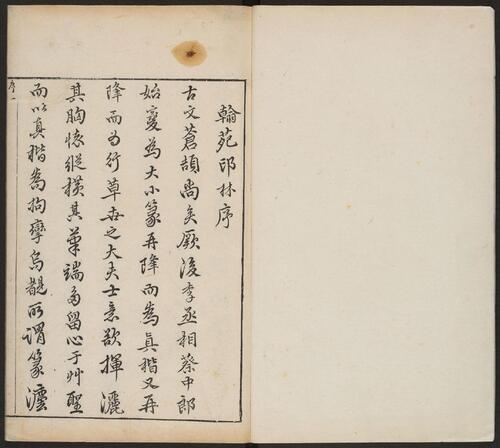 翰苑印林序
古文蒼頡尚矣厥後李丞相蔡中郎
始變為大小篆再降而為真楷又再
降而為行草世之大夫士意欲揮灑
其胸懷縱橫其筆端多留心于艸聖
而以真楷為拘攣烏覩所謂篆灋
序一